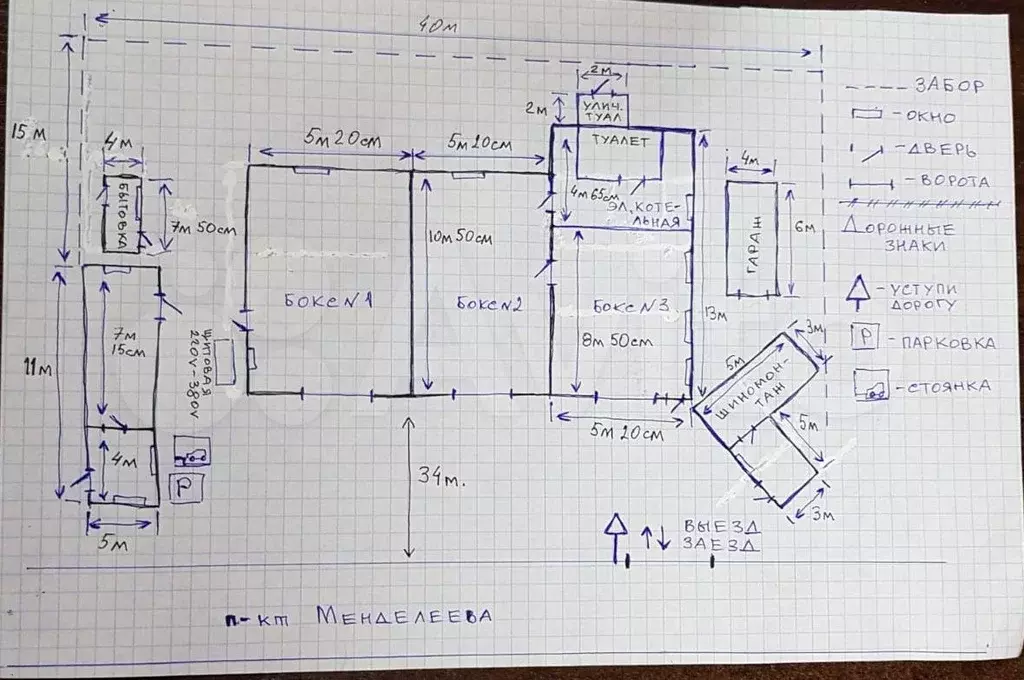 40м
15 м
4м
БЫТОВКА
7м 50см
5м 20см
5м 20см
2м
2м
УЛИЧ.
ТУАЛ
ТУАЛЕТ
4м 65см
ЭЛ. КОТЕ-
ЛЬНАЯ
10м 50см
БОКС N1
БОКС N2
БОКС N3
8м 50см
13м
4м
ГАРАЖ
6м
3м
5м
ШИНОМОН-
ТАЖ
5м
3м
11м
7м
15см
4м
5м
ЩИТОВАЯ
220V-380V
P
34м.
5м 20см
ВЫЕЗД
ЗАЕЗД
п-кт МЕНДЕЛЕЕВА
- ЗАБОР
- ОКНО
- ДВЕРЬ
- ВОРОТА
ДОРОЖНЫЕ
ЗНАКИ
- УСТУПИ
ДОРОГУ
P - ПАРКОВКА
- СТОЯНКА